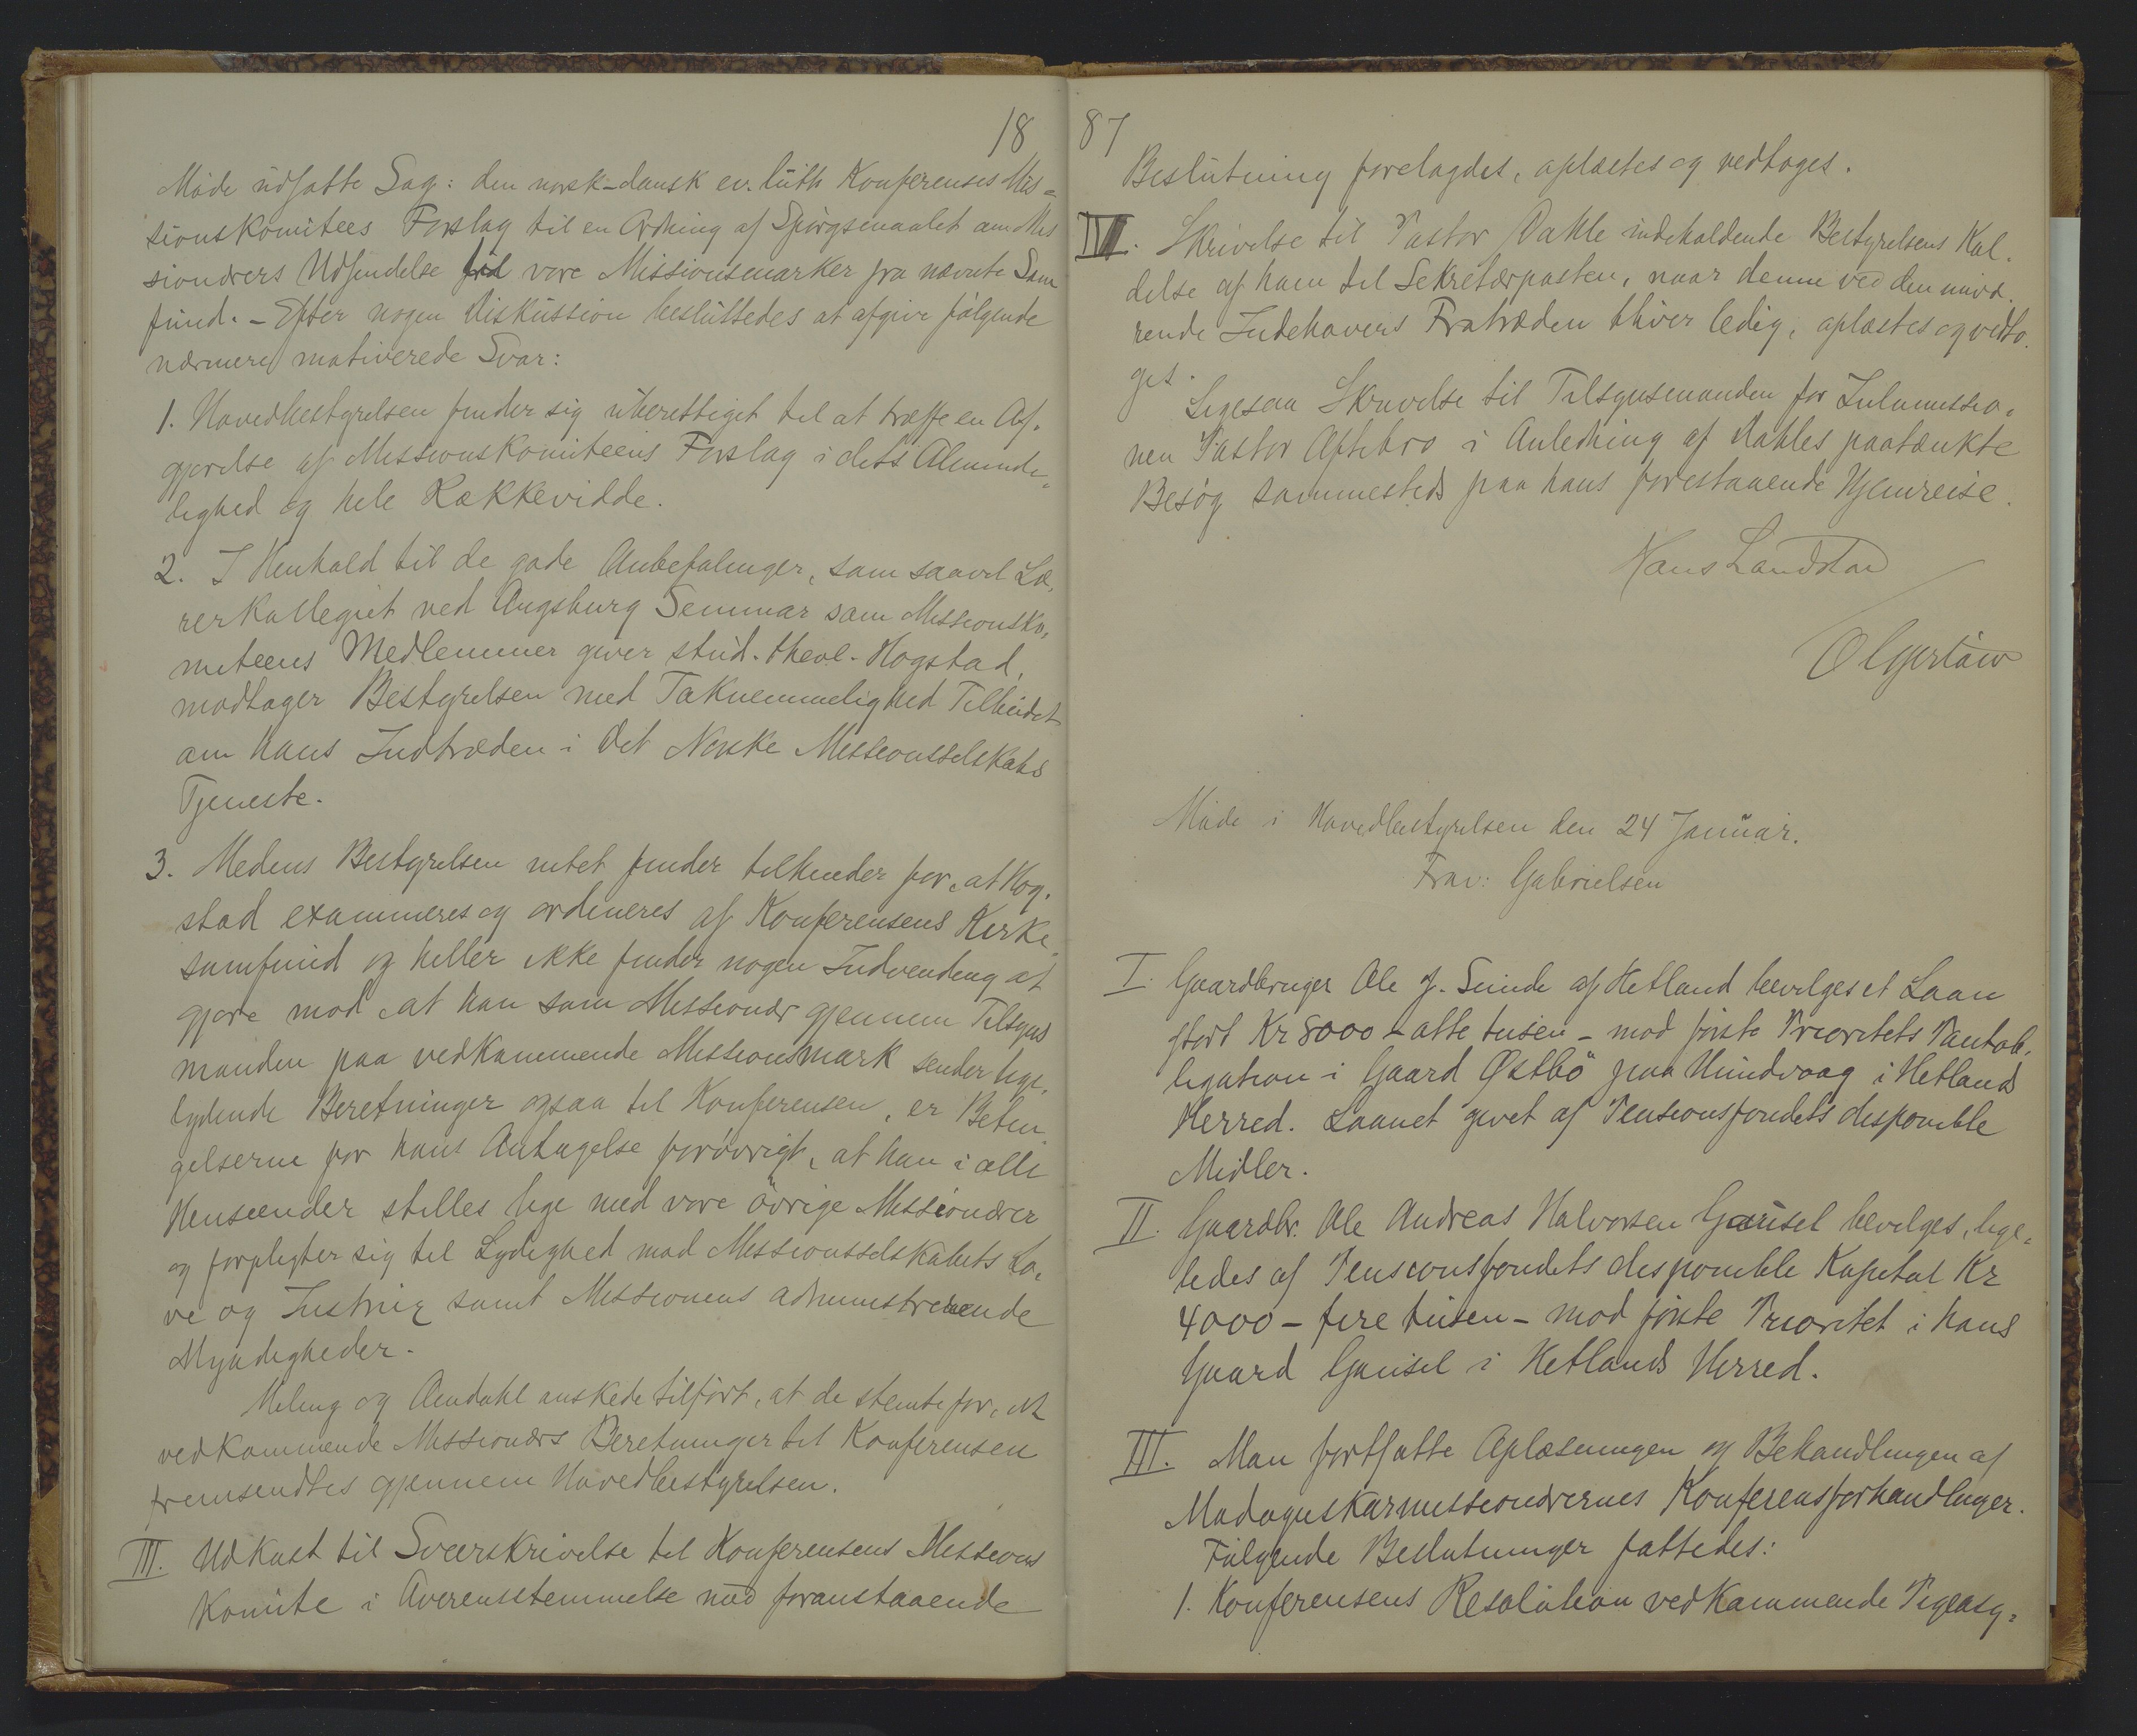 18
Møde udsatte Sag: den norsk-dansk ev. luth Konferenses Mis=
sionskomitees Forslag til en Ordning af Spørgsmaalet om Mis
sionærers Udsendelse til vore Missionsmarker fra nævnte Sam
fund. - Efter nogen Diskussion besluttedes at afgive følgende
nærmere motiverede Svar:
1. Hovedbestyrelsen finder sig uberettiget til at træffe en Af-
gjørelse af Missionskomiteens Forslag i dets Alminde=
lighed og hele Rækkevidde.
2. I Henhold til de gode Anbefalinger, som saavel Læ,
rerkollegiet ved Augsburg Seminar som Missionsko,
miteens Medlemmer giver stud. theol. Hogstad,
modtager Bestyrelsen med Taknemmelighed Tilbudet
om hans Indtræden i Det Norske Missionsselskabs
Tjeneste.
3. Medens Bestyrelsen intet finder tilhinder for, at Hog.
stad examineres og ordineres af Konferensens Kirke
samfund og heller ikke finder nogen Indvending at
gjøre mod, at han som Missionær gjennem Tilsyns
manden paa vedkommende Missionsmark sender lige,
lydende Beretninger ogsaa til Konferensen, er Betin
gelserne for hans Antagelse forøvrigt, at han i alle
Henseender stilles lige med vore øvrige Missionærer
og forpligter sig til Lydighed mod Missionsselskabets Lo,
ve og Instrux samt Missionens administrerende
Myndigheder.
Meling og Amdahl ønskede tilført, at de stemte for, at
vedkommende Missionærs Beretninger til Konferensen
fremsendtes gjennem Hovedbestyrelsen.
III. Udkast til Svarskrivelse til Konferensens Missions
Komite i Overensstemmelse med foranstaaende
87
Beslutning forelagdes, oplæstes og vedtoges.
IV. Skrivelse til Pastor Dahle indeholdende Bestyrelsens Kal.
delse af ham til Sekretærposten, naar denne ved den nuvæ.
rende Indehavers Fratræden bliver ledig, oplæstes og vedto.
ges.
Ligesaa Skrivelse til Tilsynsmanden for Zulumissio,
nen Pastor Oftebro i Anledning af Dahles paatænkte
Besøg sammesteds paa hans forestaaende Hjemreise.
Hans Landstad
O Gjerløw
Møde i Hovedbestyrelsen den 24 Januar.
Frav: Gabrielsen
I. Gaardbruger Ole J. Sunde af Hetland bevilges et Laan
stort Kr 8000 - otte tusen - mod første Prioritets Pantob.
ligation i Gaard Østbø paa Hundvaag i Hetland
Herred. Laanet givet af Pensionsfondets disponible
Midler.
II. Gaardbr. Ole Andreas Halvorsen Gausel bevilges, lige=
ledes af Pensionsfondets disponible Kapital Kr
4000 - fire tusen - mod første Prioritet i hans
Gaard Gausel i Hetlands Herred.
III. Man fortsatte Oplæsningen og Behandlingen af
Madagaskarmissionærernes Konferensforhandlinger.
Følgende Beslutninger fattedes:
1. Konferensens Resolution vedkommende Pigeasy=